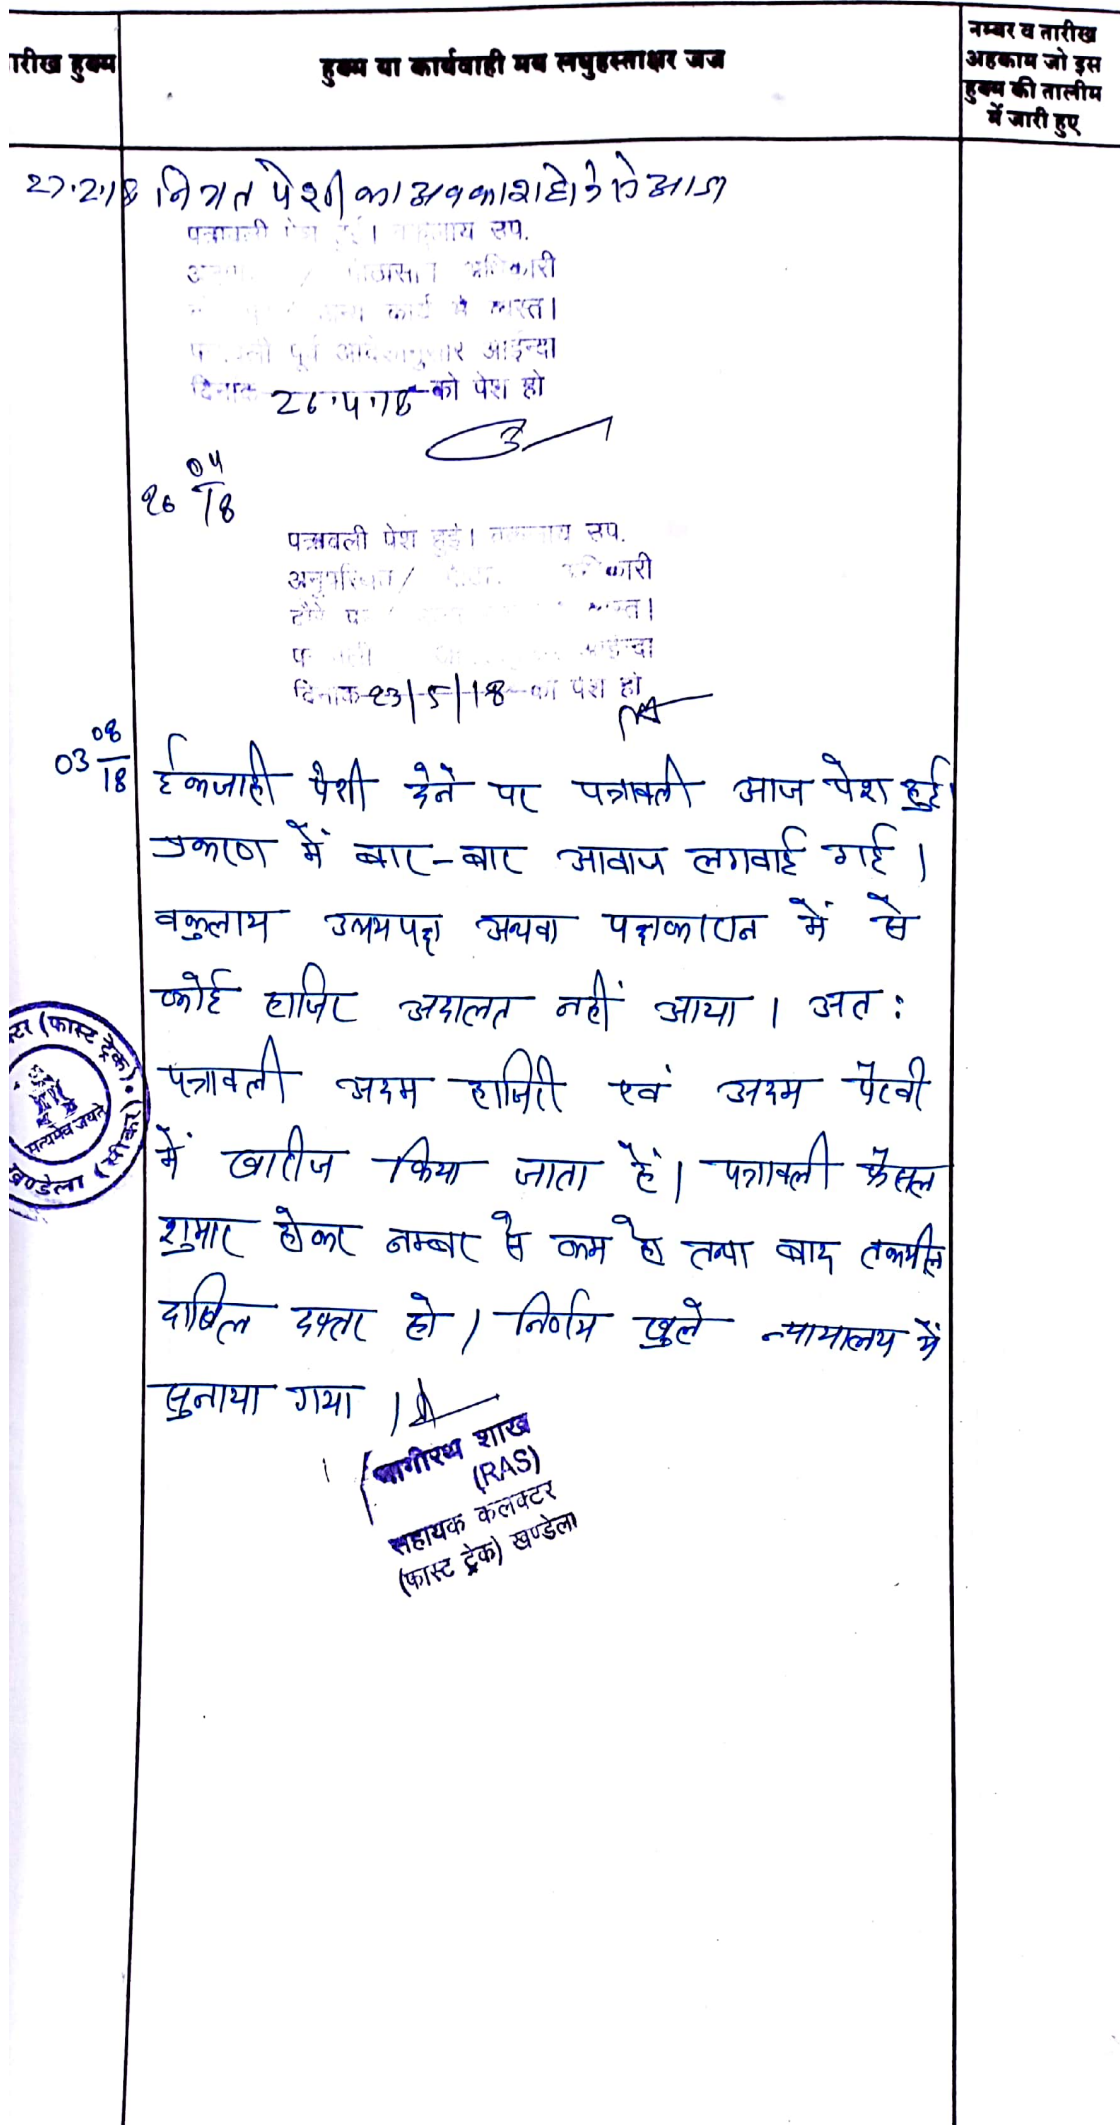 तारीख हुक्म
हुक्म या कार्यवाही मय लघुहस्ताक्षर जज
नम्बर व तारीख
अहकाम जो इस
हुक्म की तालीम
में जारी हुए
27.2.18 नियत पेशी का अवकाश होने से आज
पत्रावली पेश हुई। वकुलाय उप.
अधिकारी
कार्य मे व्यस्त।
पूर्व आदेशानुसार आईन्दा
दिनांक 26.4.18 को पेश हो
26 04/18
पत्रावली पेश हुई। वकुलाय उप.
अनुपस्थित/ अधिकारी
दौरे पर व्यस्त।
आईन्दा
दिनांक 23/5/18 को पेश हो
03 08/18
ईकजाही पेशी देने पर पत्रावली आज पेश हुई
प्रकरण में बार-बार आवाज लगवाई गई।
वकुलाय उभयपक्ष अथवा पक्षकारान में से
कोई हाजिर अदालत नहीं आया। अत:
पत्रावली अदम हाजिरी एवं अदम पैरवी
में खारीज किया जाता हैं। पत्रावली फैसल
शुमार होकर नम्बर से कम हो तथा बाद तकमील
दाखिल दफ्तर हो। निर्णय खुले न्यायालय में
सुनाया गया।
(फास्ट ट्रेक)
सत्यमेव जयते
खण्डेला (सीकर)
भागीरथ शाख
(RAS)
सहायक कलक्टर
(फास्ट ट्रेक) खण्डेला